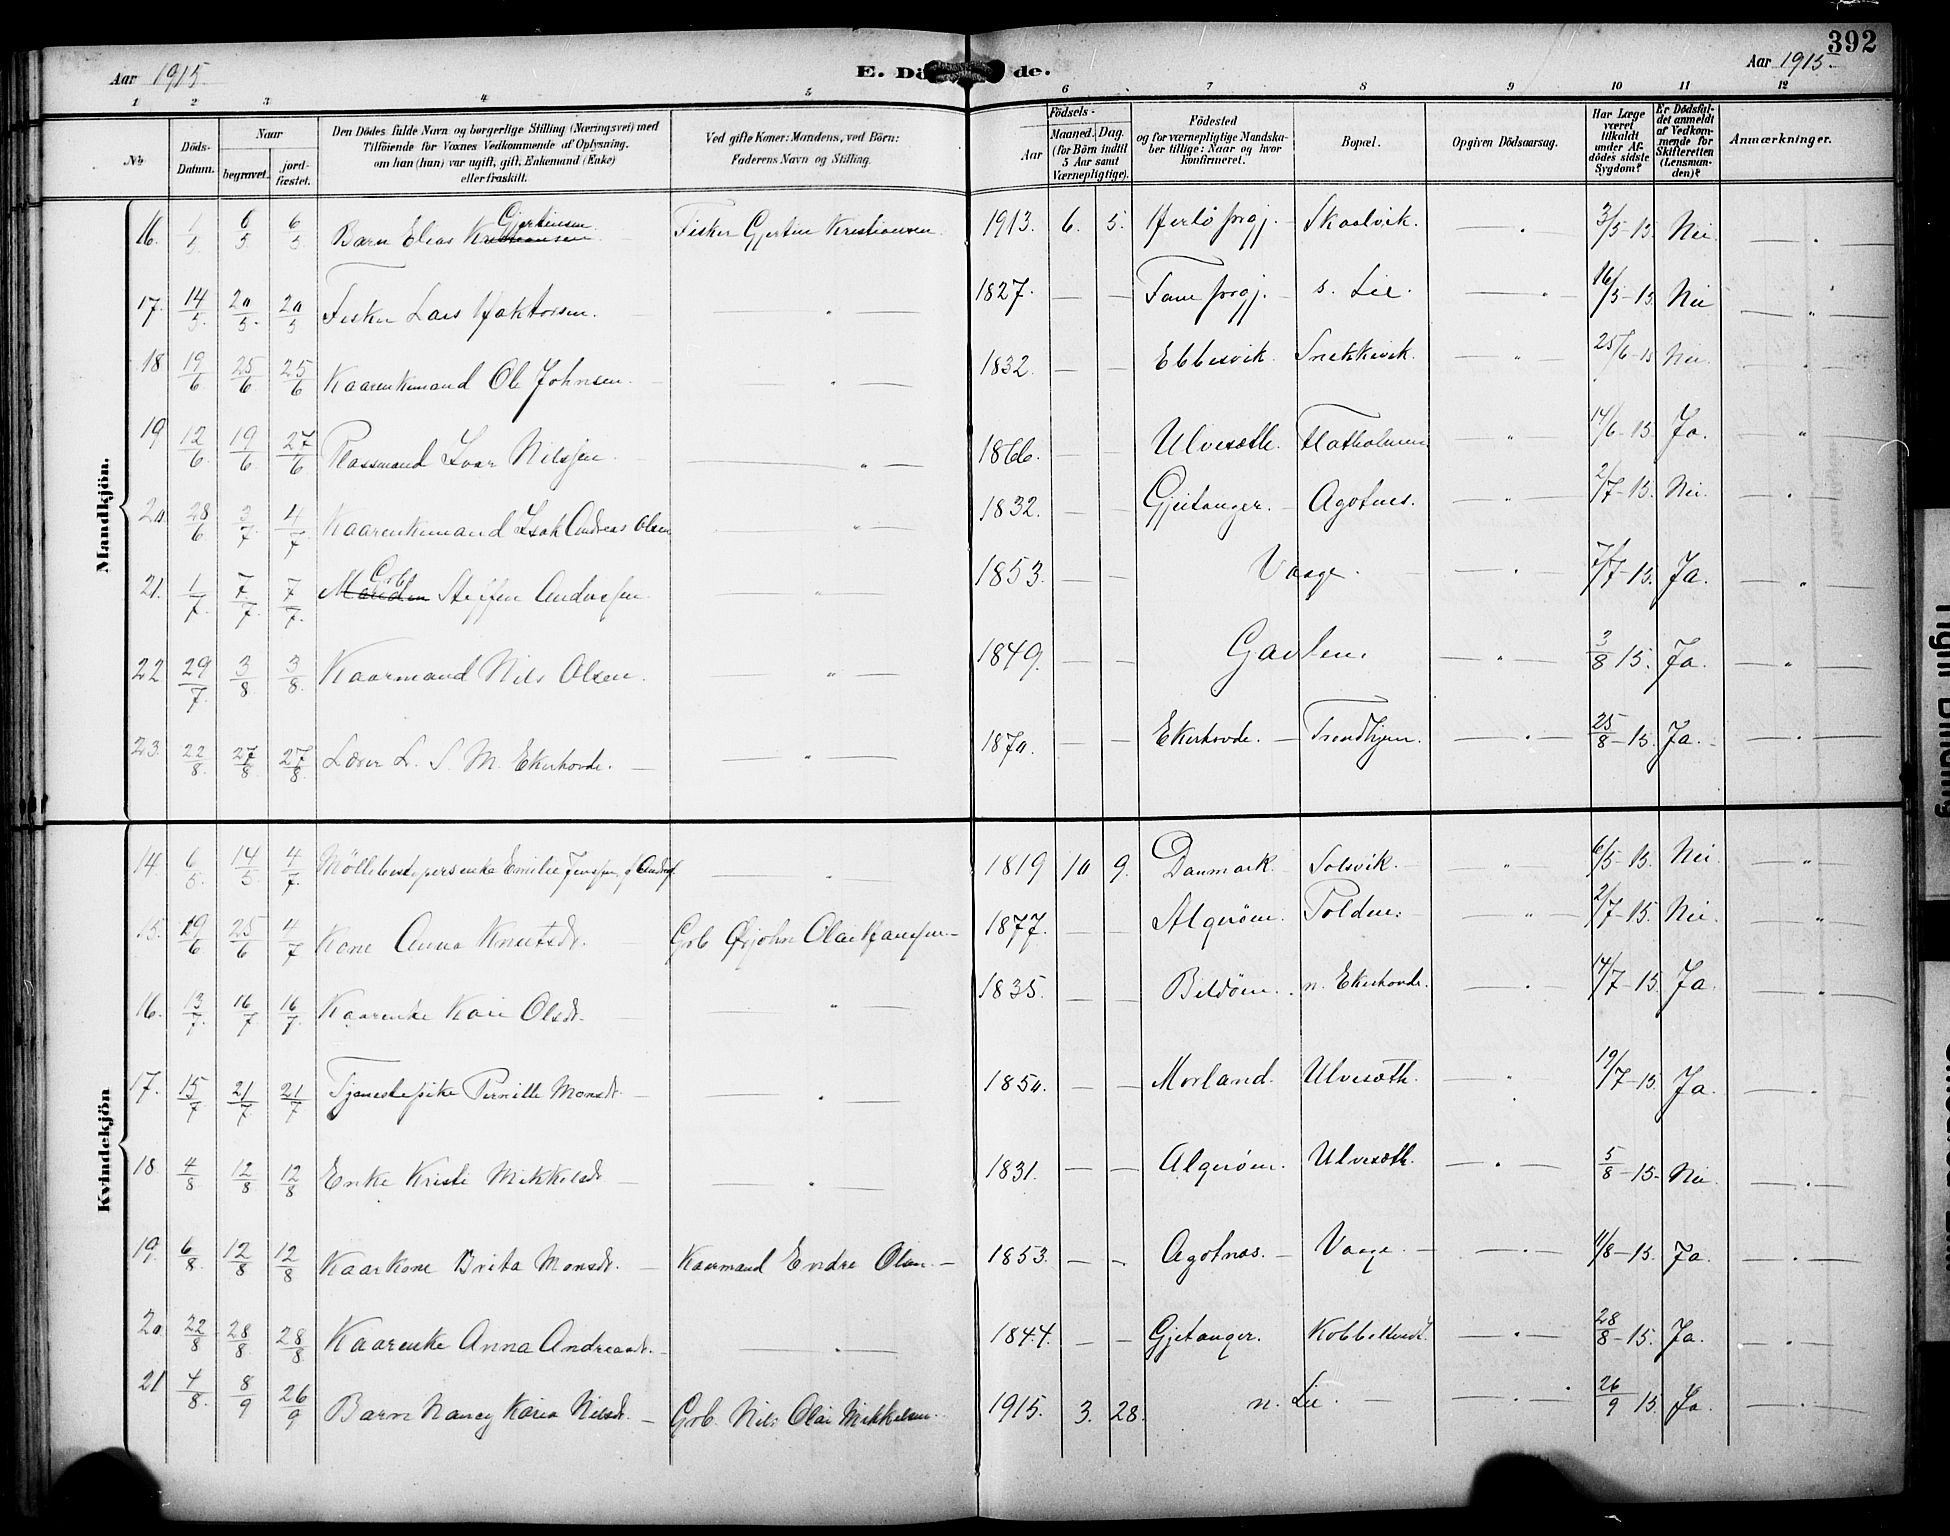 392
Aar 1915. E. Dö de. Aar 1915.
1 2 3 4 5 6 7 8 9 10 11 12
No Döds-Datum. Naar begravet. jord-fæstet. Den Dödes fulde Navn og borgerlige Stilling (Næringsvei) med Tilföiende for Voxnes Vedkommende af Oplysning, om han (hun) var ugift, gift, Enkemand (Enke) eller fraskilt. Ved gifte Koner: Mandens, ved Börn: Faderens Navn og Stilling. Aar Födsels- Maaned. Dag. (for Börn indtil 5 Aar samt Værnepligtige). Födested og for værnepligtige Mandska-ber tillige: Naar og hvor konfirmeret. Bopæl. Opgiven Dödsaarsag. Har Læge været tilkaldt under Af-dödes sidste Sygdom? Er Dödsfal-det anmeldt af Vedkom-mende for Skifteretten (Lensman-den)? Anmærkninger.
Mandkjön.
16. 1/5 6/5 6/5 Barn Elias Kristiansen Gjertinsen Fisker Gjertin Kristiansen 1913. 6. 5. Herlö prgj. Skaalvik. " 3/5-15. Nei. "
17. 14/5. 20/5. 20/5 Fisker Lars Haktorsen. " 1827. — — Fane prgj. s. Lie. " 16/5-15. Nei "
18 19/6 25/6 25/6 Kaarenkemand Ole Johnsen. " 1832. — — Ebbesvik. Snekkevik. " 25/6-15 Nei. "
19 12/6. 19/6 27/6 Plassmand Ivar Nilssen " 1866. — — Ulvesæth. Flatholmen. " 14/6-15. Ja. "
20 28/6 3/7 4/7 Kaarenkemand Isak Andreas Olsen " 1832. — — Gjeitanger. Agotnes. " 2/7-15. Nei. "
21. 1/7. 7/7 7/7. Manden Grb. Steffen Anderssen. " 1853. — — Vaage. " 7/7-15. Ja. "
22 29/7 3/8. 3/8. Kaarmand Nils Olsen. " 1849. — — Gavlen. " 3/8 15. Ja. "
23. 22/8. 27/8 27/8. Lærer L. S. M. Ekerhovde. " 1870. — — Ekerhovde. Trondhjem. " 25/8-15. Ja. "
Kvindekjön
14. 6/5. 14/5. 4/7. Emilie Jenssen " 1819 10 9. Danmark. Solsvik. " 6/5-15. Nei. "
15. 19/6 25/6 4/7 Kone Anna Knutsdt. Grb Ørjohn Olai Hanssen 1877. — — Algeröen. Polden. " 2/7-15. Nei. "
16. 13/7. 16/7 16/7. Kaarenke Kari Olsdt. " 1835. — — Bildöen. n. Ekerhovde. " 14/7-15. Ja "
17. 15/7 21/7. 21/7 Tjenestepike Pernille Monsdt. " 1850. — — Morland. Ulvesæth. " 19/7-15 Ja. "
18. 4/8 12/8. 12/8 Enke Kristi Mikkelsdt. " 1831. — — Algeröen. Ulvesæth. " 5/8-15. Nei. "
19. 6/8. 12/8 12/8 Kaarkone Brita Monsdt. Kaarmand Endre Olsen. 1853. — — Agotnæs. Vaage. " 11/8-15. Ja. "
20 22/8 28/8. 28/8 Kaarenke Anna Andreasdt. " 1844. — — Gjetanger. Kobbeltvedt. " 28/8-15. Ja. "
21 4/8. 8/9 26/9 Barn Nancy Karia Nilsdt. Grb. Nils Olai Mikkelsen. 1915. 3. 28. n. Lie. " 26/9 15. Ja. "